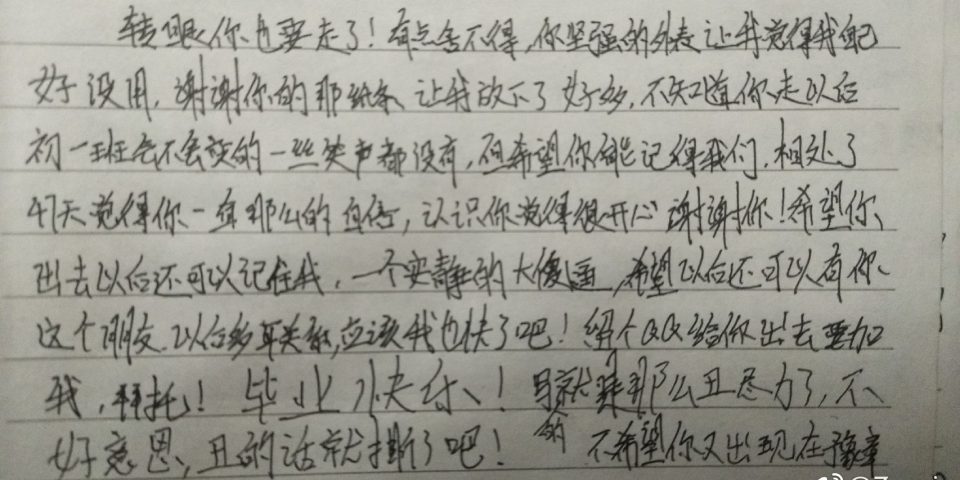 转眼你也要走了！有点舍不得，你坚强的外表让我觉得我自己
好没用，谢谢你的那纸条，让我放下了好多，不知道你走以后
初一班会不会就的一些笑声都没有，但希望你能记得我们，相处了
47天觉得你一直那么的自信，认识你觉得很开心谢谢你！希望你
出去以后还可以记住我，一个安静的大傻逼，希望以后还可以有你
这个朋友，以后多联系，应该我也快了吧！留个QQ给你出去要加
我，拜托！毕业快乐！字就是那么丑尽力了，不
好意思，丑的话就撕了吧！不希望你又出现在豫章